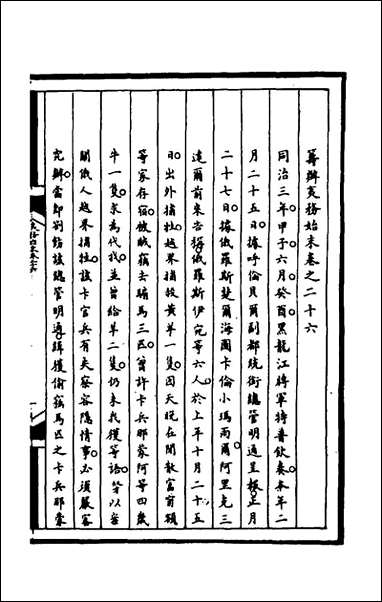 籌辦夷務始末卷之二十六
同治三年甲子六月癸酉黑龍江將軍特普欽奏本年二
月二十五日據呼倫貝爾副都統銜總管明通呈報正月
二十七日據俄羅斯楚爾海圖卡倫小瑪雨爾阿里克三
達爾前來告稱俄羅斯伊宛等六人於上年十月二十五
日出外捕牲越界捕殺黃羊一隻因天晚在閒散富甯額
等家存宿被賊竊去騙馬三匹曾許卡兵那蒙阿等四歲
牛一隻求為代找並曾給羊二隻仍未找獲等語等以容
關俄人越界捕牲該卡官兵有失察容隱情事必須嚴審
究辦當即劄飭該總管明通緝獲偷竊馬匹之卡兵那蒙